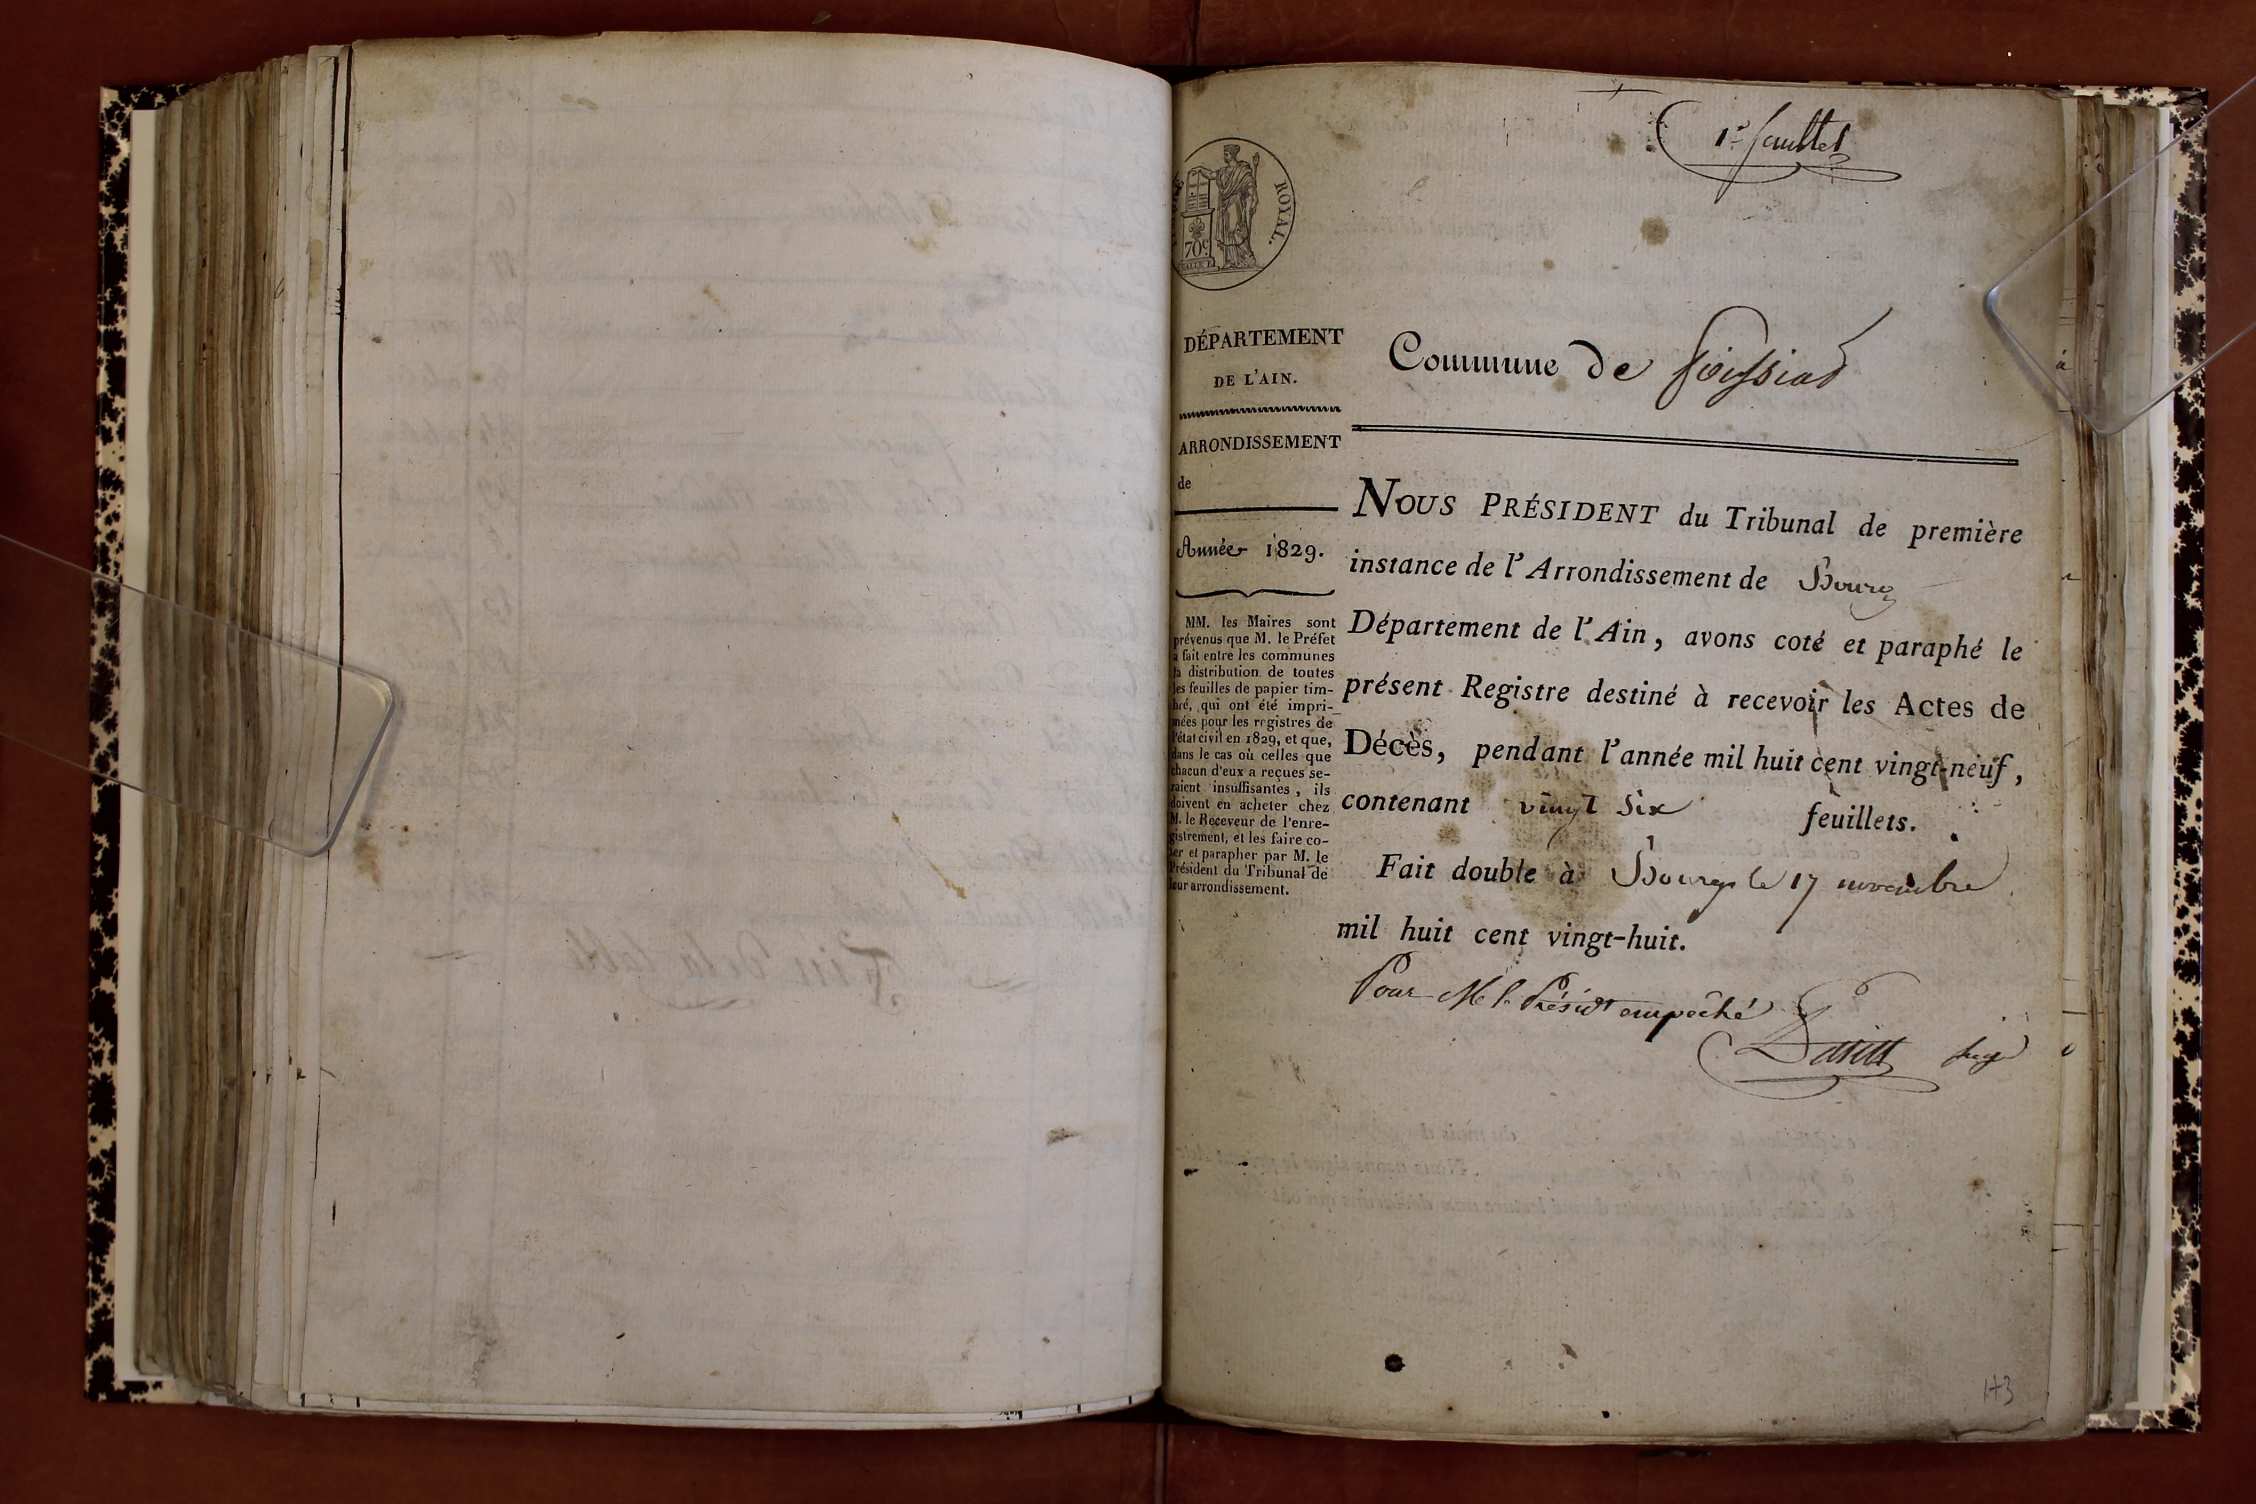 1er feuillet
ROYAL.
70c
DÉPARTEMENT
DE L'AIN.
ARRONDISSEMENT
de
Année 1829.
MM. les Maires sont
prévenus que M. le Préfet
a fait entre les communes
la distribution de toutes
les feuilles de papier tim-
bré, qui ont été impri-
mées pour les registres de
l'état civil en 1829, et que,
dans le cas où celles que
chacun d'eux a reçues se-
raient insuffisantes, ils
doivent en acheter chez
M. le Receveur de l'enre-
gistrement, et les faire co-
ter et parapher par M. le
Président du Tribunal de
leur arrondissement.
Commune de Foissiat
NOUS PRÉSIDENT du Tribunal de première
instance de l'Arrondissement de Bourg
Département de l'Ain, avons coté et paraphé le
présent Registre destiné à recevoir les Actes de
Décès, pendant l'année mil huit cent vingt-neuf,
contenant vingt six feuillets.
Fait double à Bourg le 17 novembre
mil huit cent vingt-huit.
Pour M le Présidt empêché
juge
143